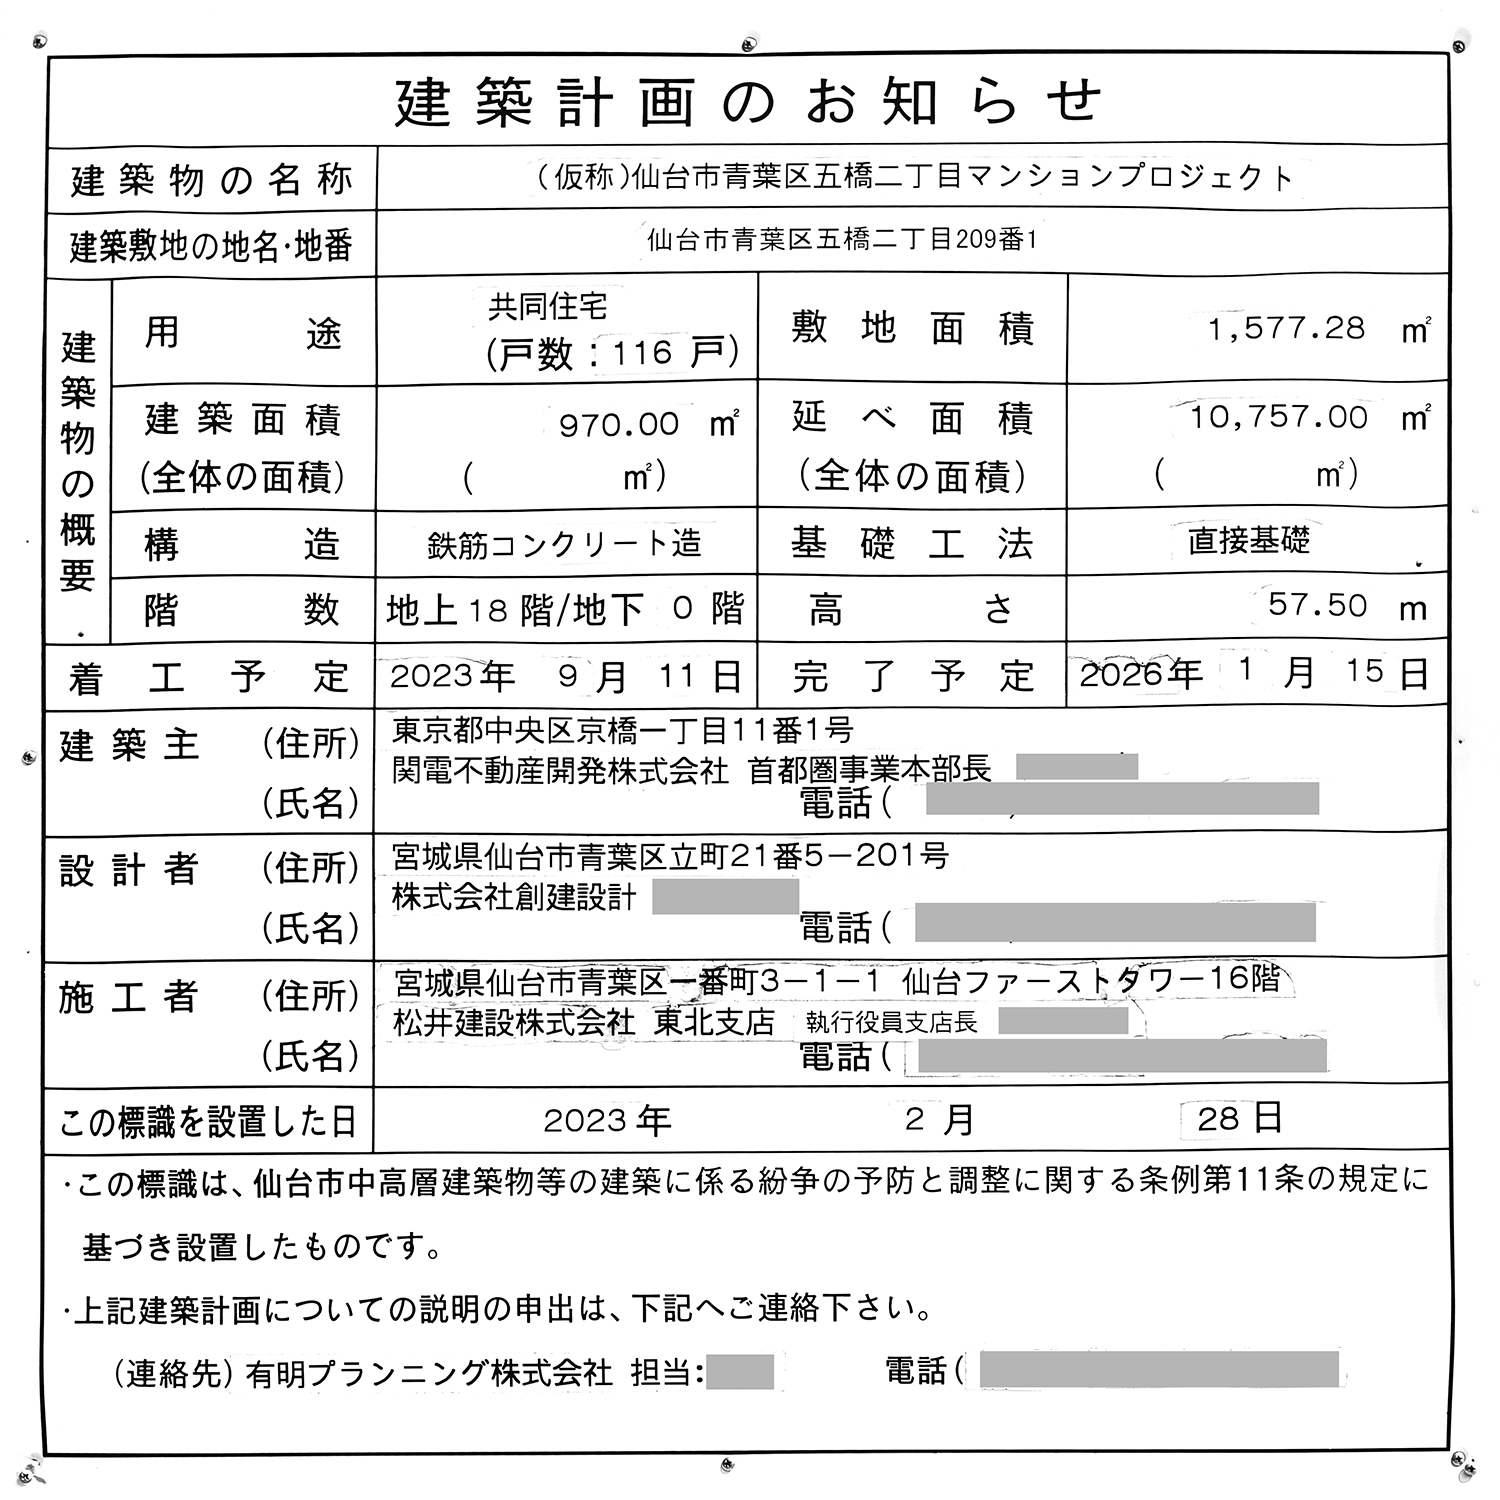 建築計画のお知らせ
建築物の名称 (仮称)仙台市青葉区五橋二丁目マンションプロジェクト
建築敷地の地名・地番 仙台市青葉区五橋二丁目209番1
建築物の概要
用途 共同住宅 (戸数：116戸) 敷地面積 1,577.28 ㎡
建築面積 970.00 ㎡ 延べ面積 10,757.00 ㎡
(全体の面積) ( ㎡) (全体の面積) ( ㎡)
構造 鉄筋コンクリート造 基礎工法 直接基礎
階数 地上18階/地下 0 階 高さ 57.50 m
着工予定 2023年 9月 11日 完了予定 2026年 1月 15日
建築主 (住所) 東京都中央区京橋一丁目11番1号
関電不動産開発株式会社 首都圏事業本部長
(氏名) 電話(
設計者 (住所) 宮城県仙台市青葉区立町21番5－201号
株式会社創建設計
(氏名) 電話(
施工者 (住所) 宮城県仙台市青葉区一番町3－1－1 仙台ファーストタワー16階
松井建設株式会社 東北支店 執行役員支店長
(氏名) 電話(
この標識を設置した日 2023年 2月 28日
・この標識は、仙台市中高層建築物等の建築に係る紛争の予防と調整に関する条例第11条の規定に
基づき設置したものです。
・上記建築計画についての説明の申出は、下記へご連絡下さい。
(連絡先) 有明プランニング株式会社 担当: 電話(